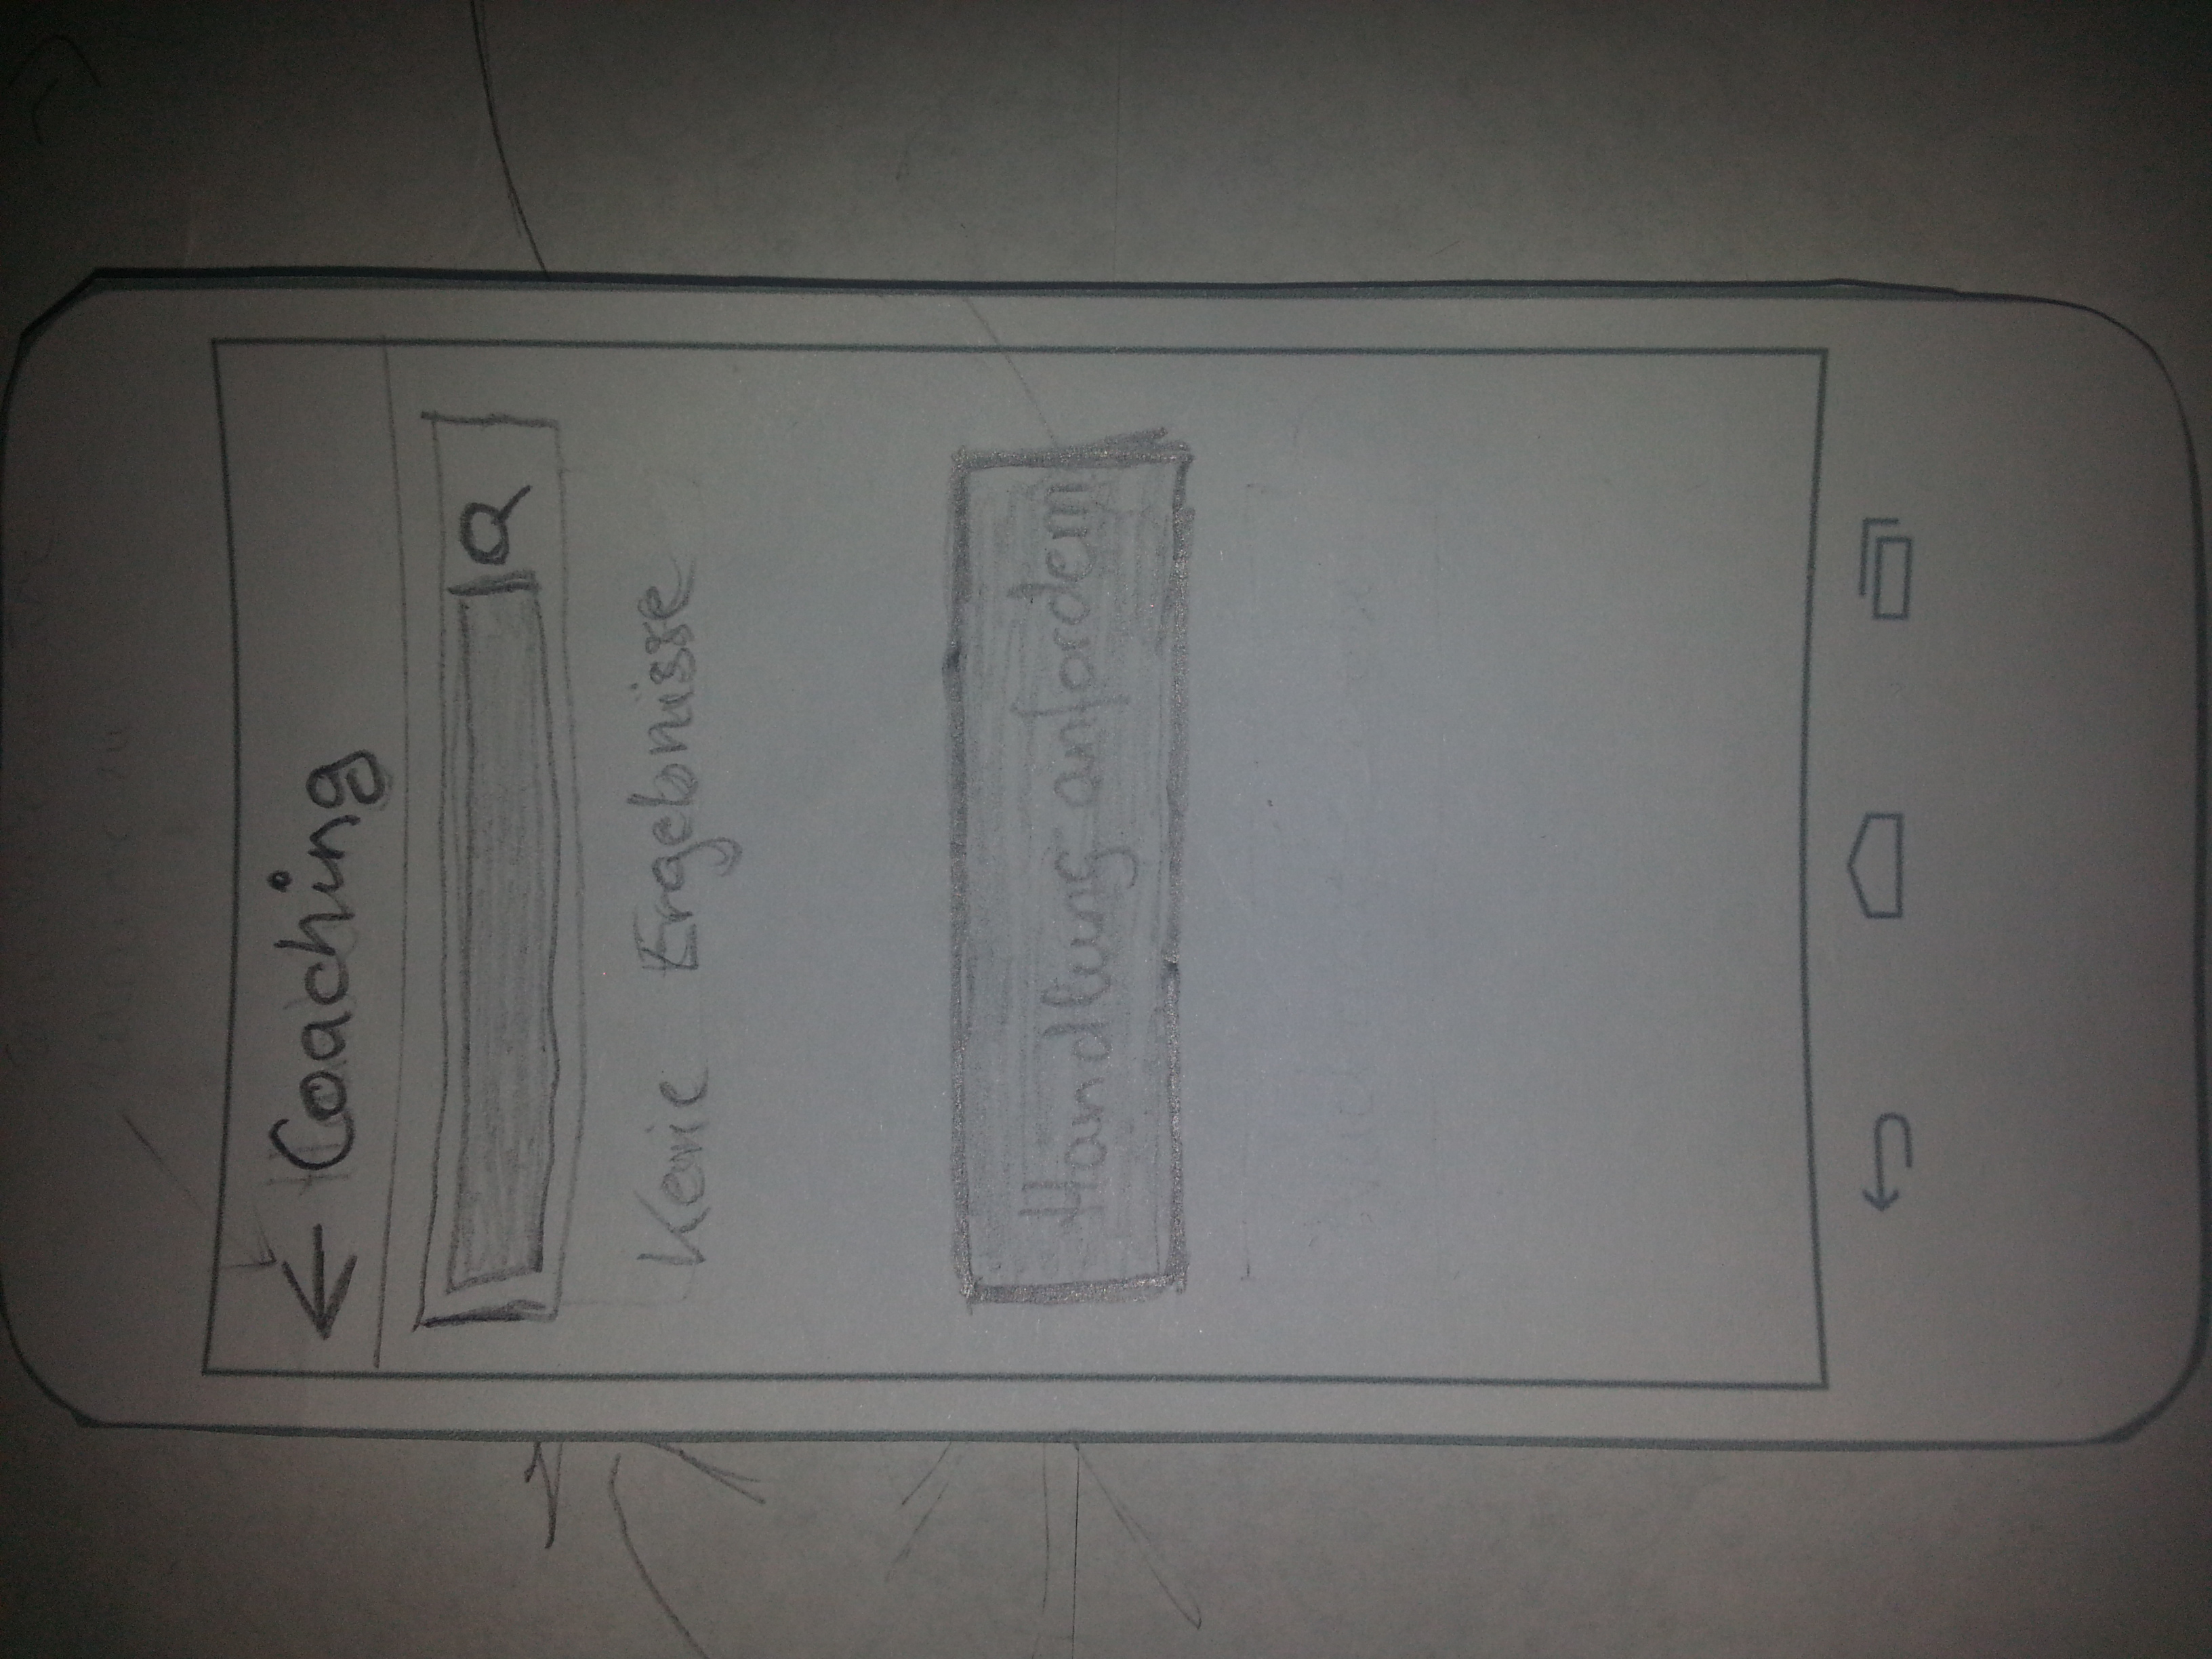 Coaching
Kenie Ergebnisse
Handlung anfordern